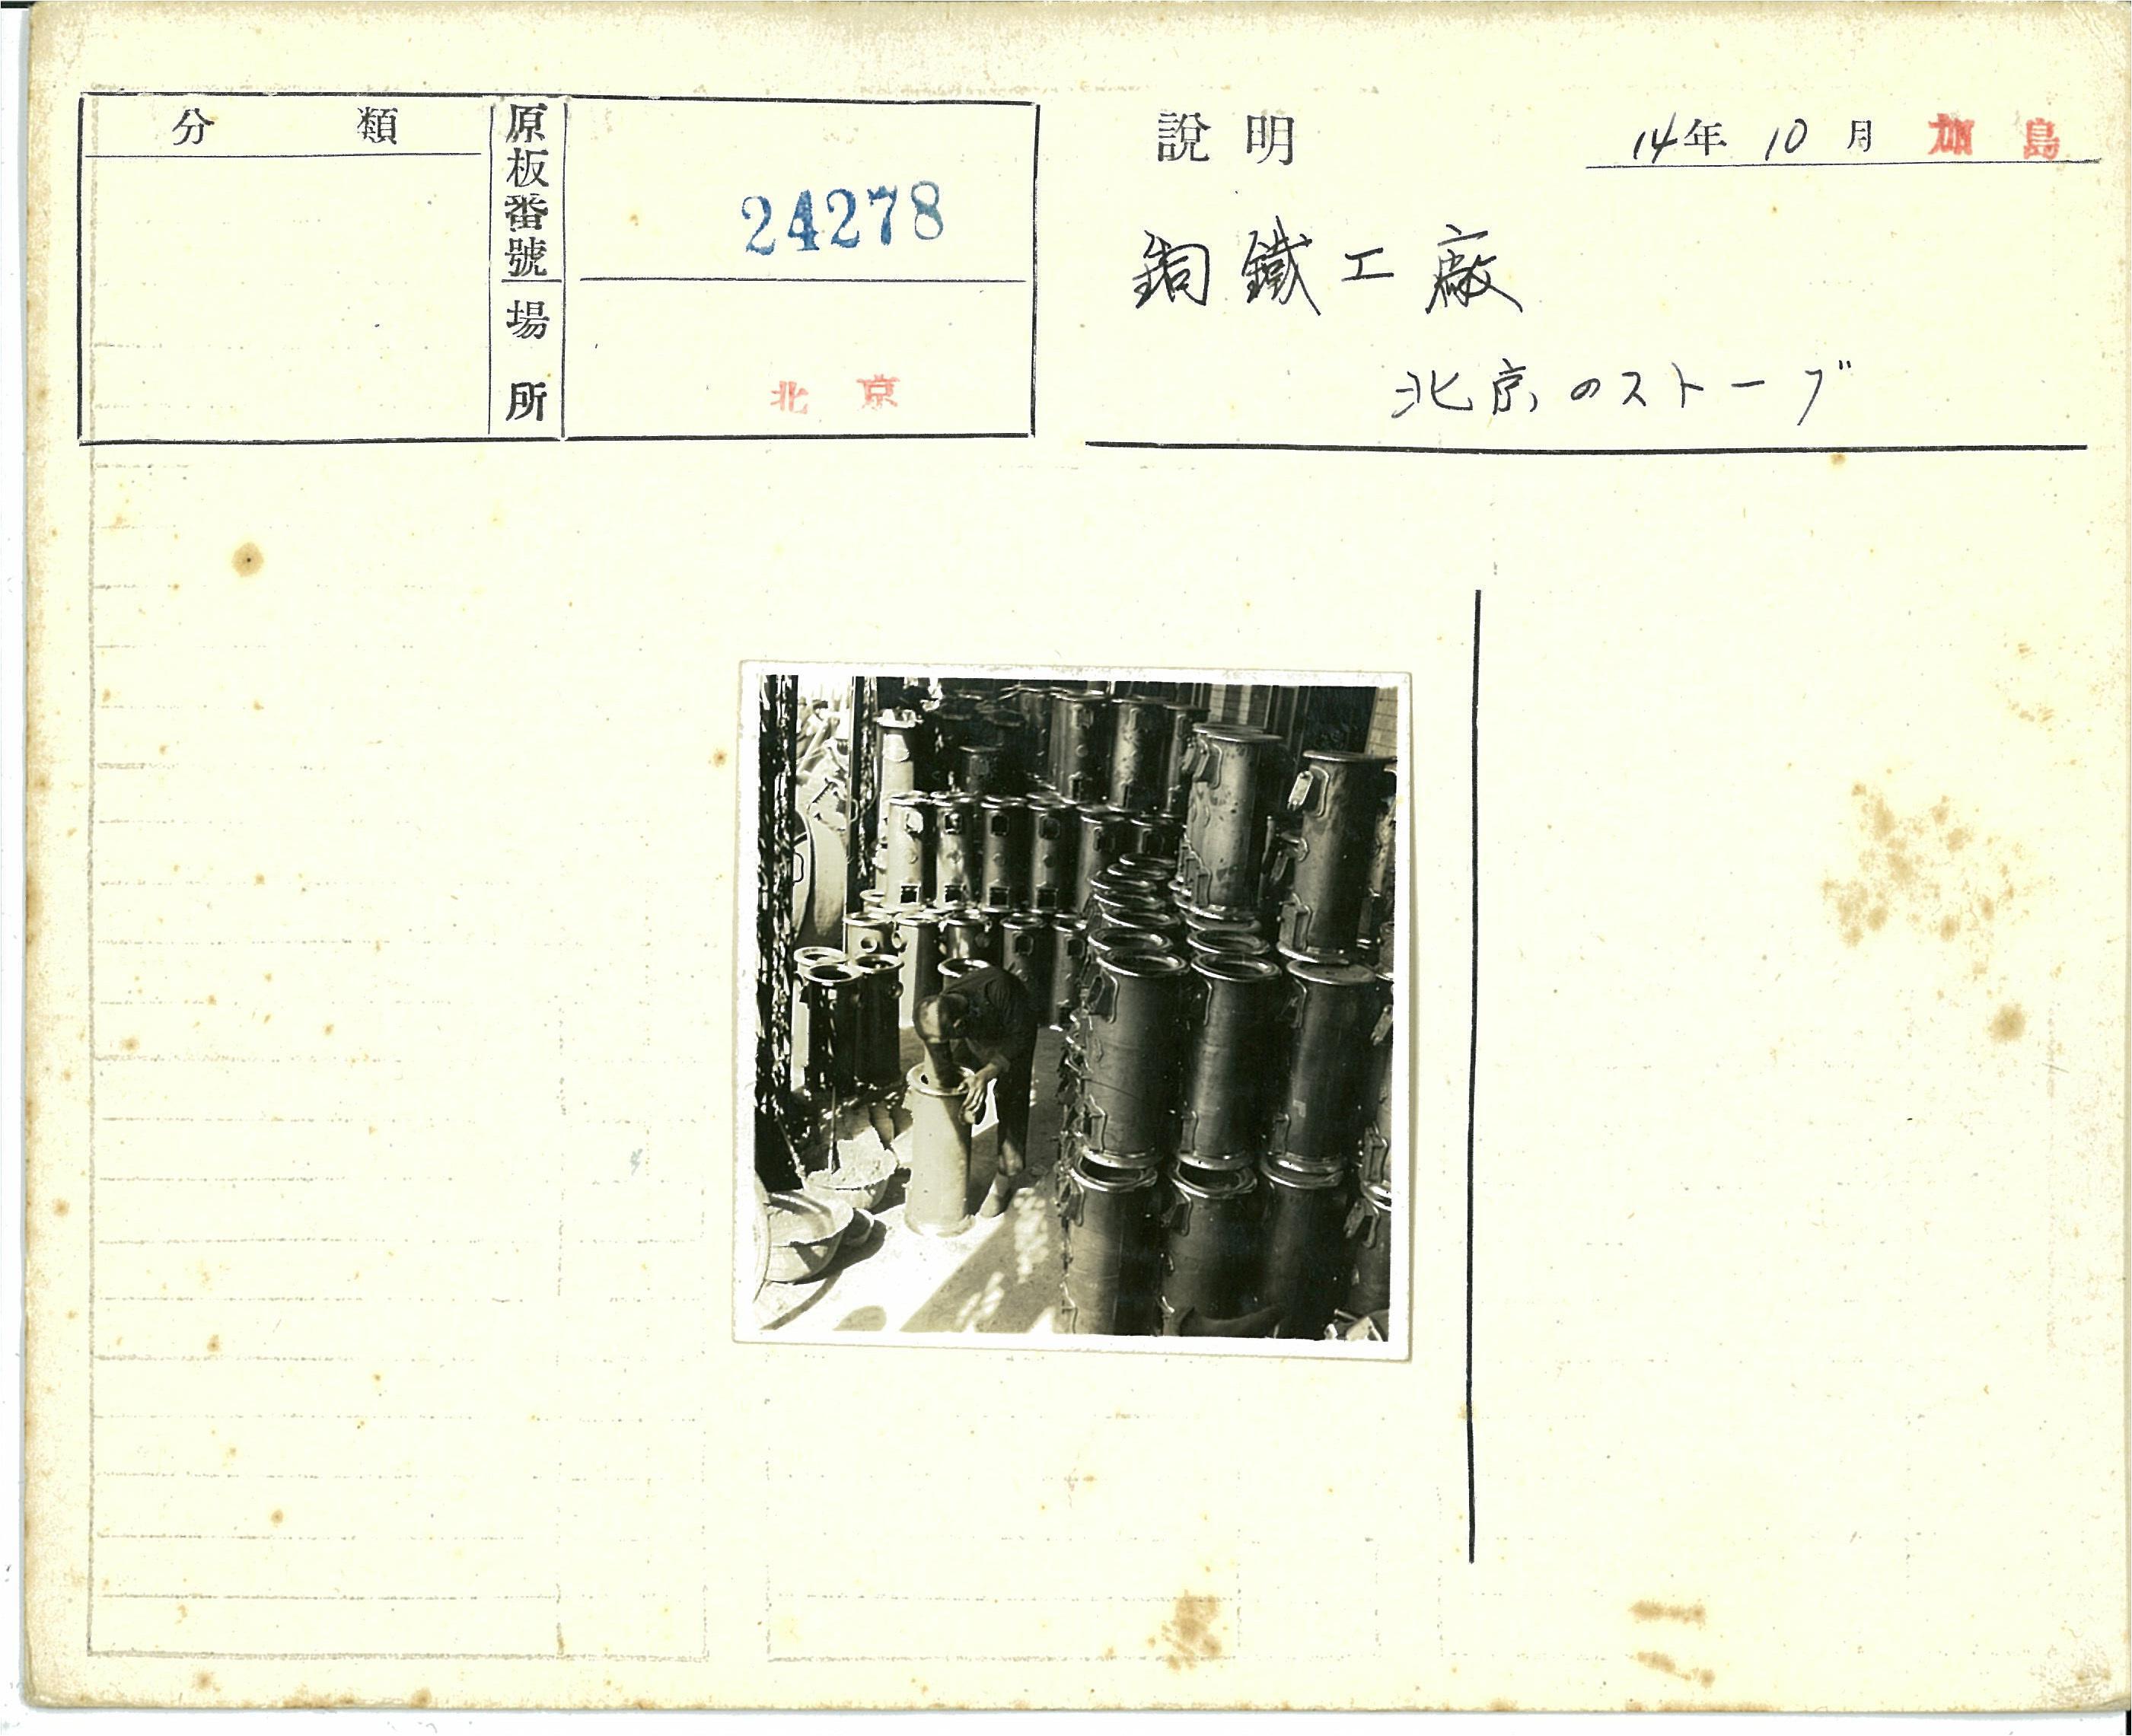 分類
原板番號
24278
場所
北京
說明
14年10月 加島
銅鐵工廠
北京のストーブ